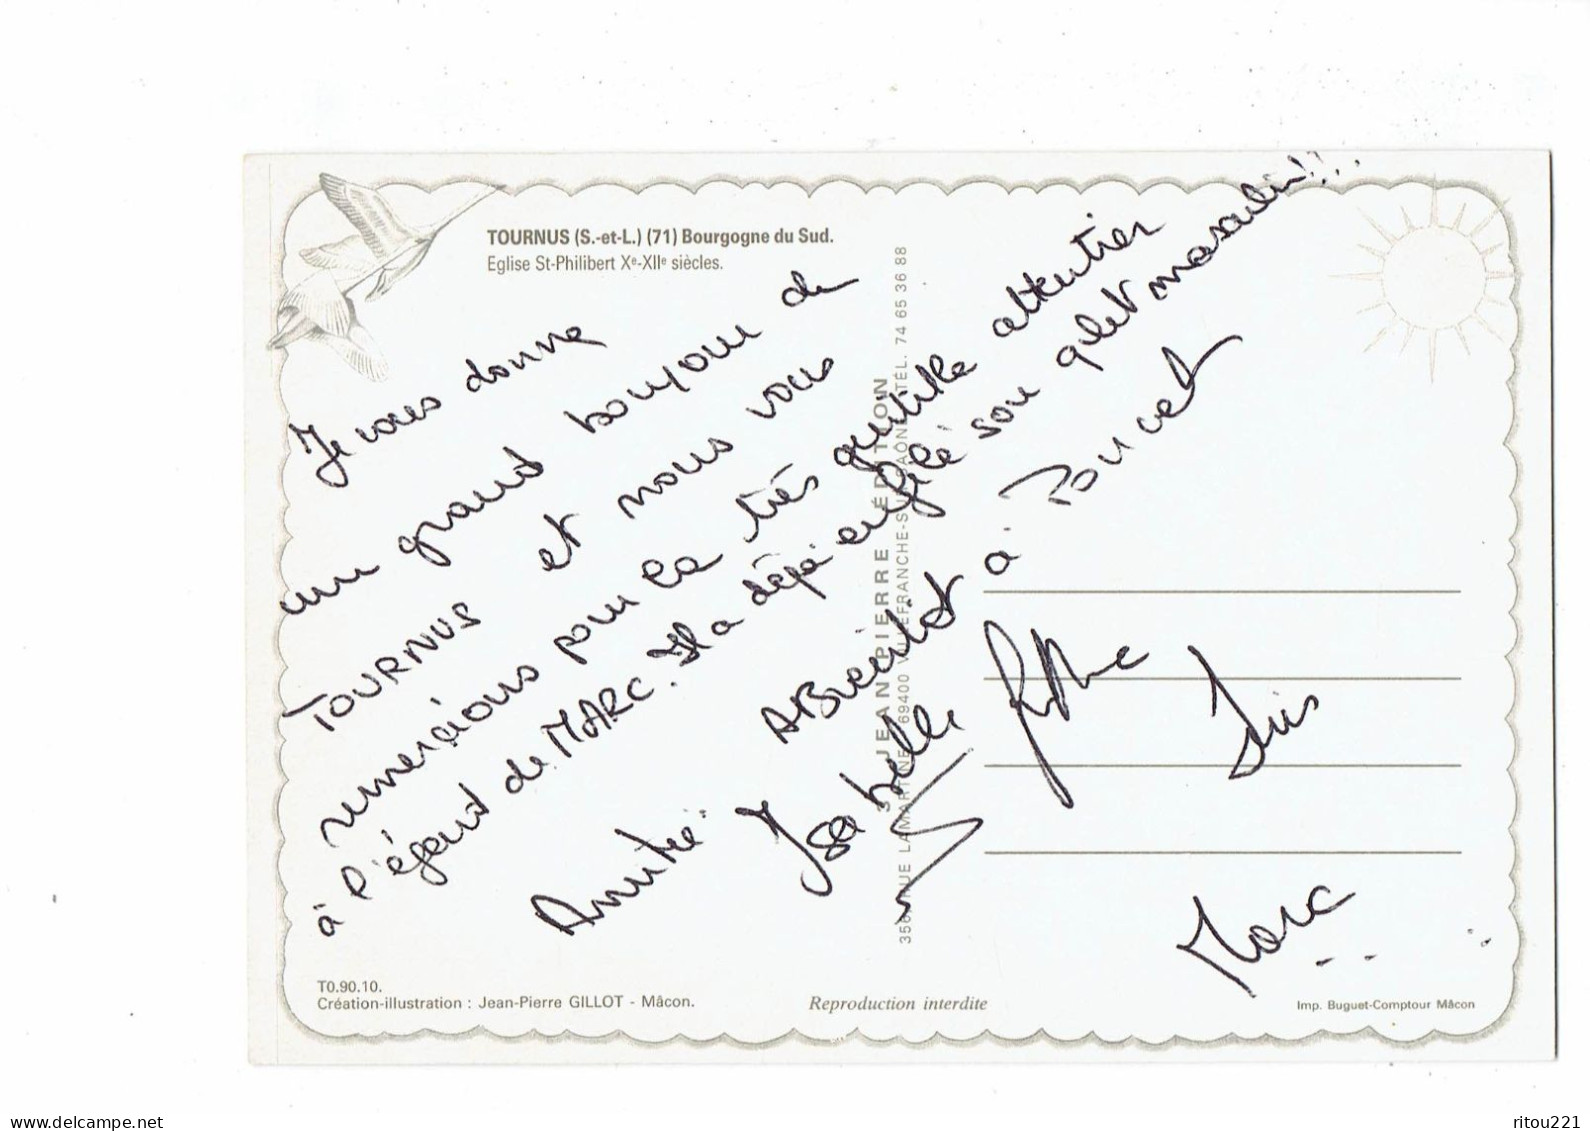 TOURNUS (S.-et-L.) (71) Bourgogne du Sud.
Eglise St-Philibert Xe-XIIe siècles.
Je vous donne
un grand bonjour de
TOURNUS et nous vous
remercions pour la très gentille attention
à l'égard de MARC. Il a déjà enfilé son gilet masculin!!
Amitié. A Bientôt à Poncet
Isabelle
Marc
JEAN PIERRE EDITION
69400 VILLEFRANCHE-SUR-SAONE TÉL. 74 65 36 88
T0.90.10.
Création-illustration : Jean-Pierre GILLOT - Mâcon.
Reproduction interdite
Imp. Buguet-Comptour Mâcon
www.delcampe.net
ritou221